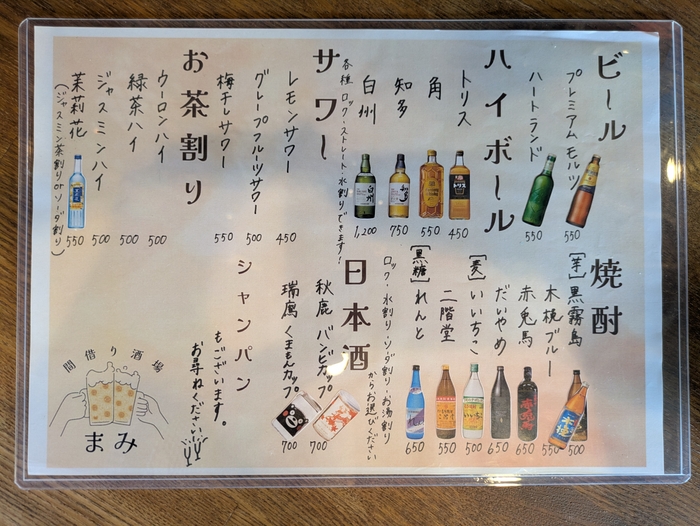 ビール
プレミアムモルツ
550
ハートランド
550
ハイボール
トリス
450
角
550
知多
750
白州
1,200
各種ロック・ストレート・水割りできます！
サワー
レモンサワー
450
グレープフルーツサワー
500
梅干しサワー
550
お茶割り
ウーロンハイ
500
緑茶ハイ
500
ジャスミンハイ
500
茉莉花
(ジャスミン茶割りorソーダ割り)
550
焼酎
[芋]黒霧島
500
木挽ブルー
550
赤兎馬
650
だいやめ
650
[麦]いいちこ
500
二階堂
550
[黒糖]れんと
650
ロック・水割り・ソダ割り・お湯割り
からお選びください
日本酒
秋鹿 バンビカップ
700
瑞鷹 くまもんカップ
700
シャンパン
もございます。
お尋ねください
間借り酒場
まみ